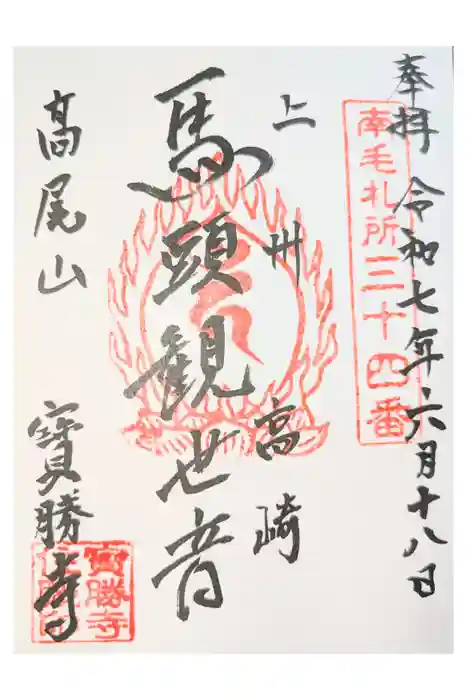 奉拝 令和七年六月十八日
南毛札所三十四番
上州 高崎
馬頭観世音
髙尾山 寳勝寺
寳勝寺